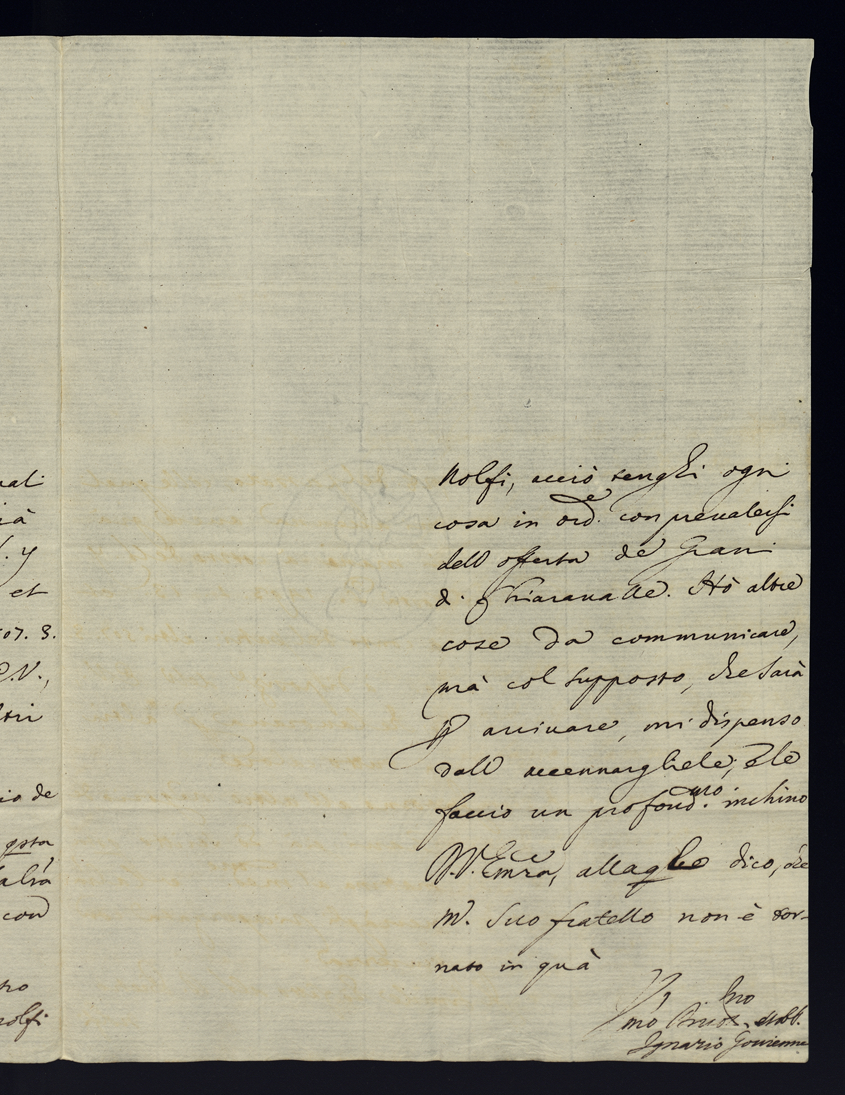 uali
ià
. y
et
07. 8.
P.V.,
ltri
io de
qsta
con
no
nolfi
Nolfi, acciò tenghi ogni
cosa in ord.e con prevalersi
dell offerta de Grani
di Chiaravalle. Hò altre
cose da communicare,
mà col supposto, che sarà
p arrivare, mi dispenso
dall accennarghele; e le
faccio un profond.mo inchino
V. Emza, alla qle dico, che
M. suo fratello non è tor-
nato in quà
Ignazio